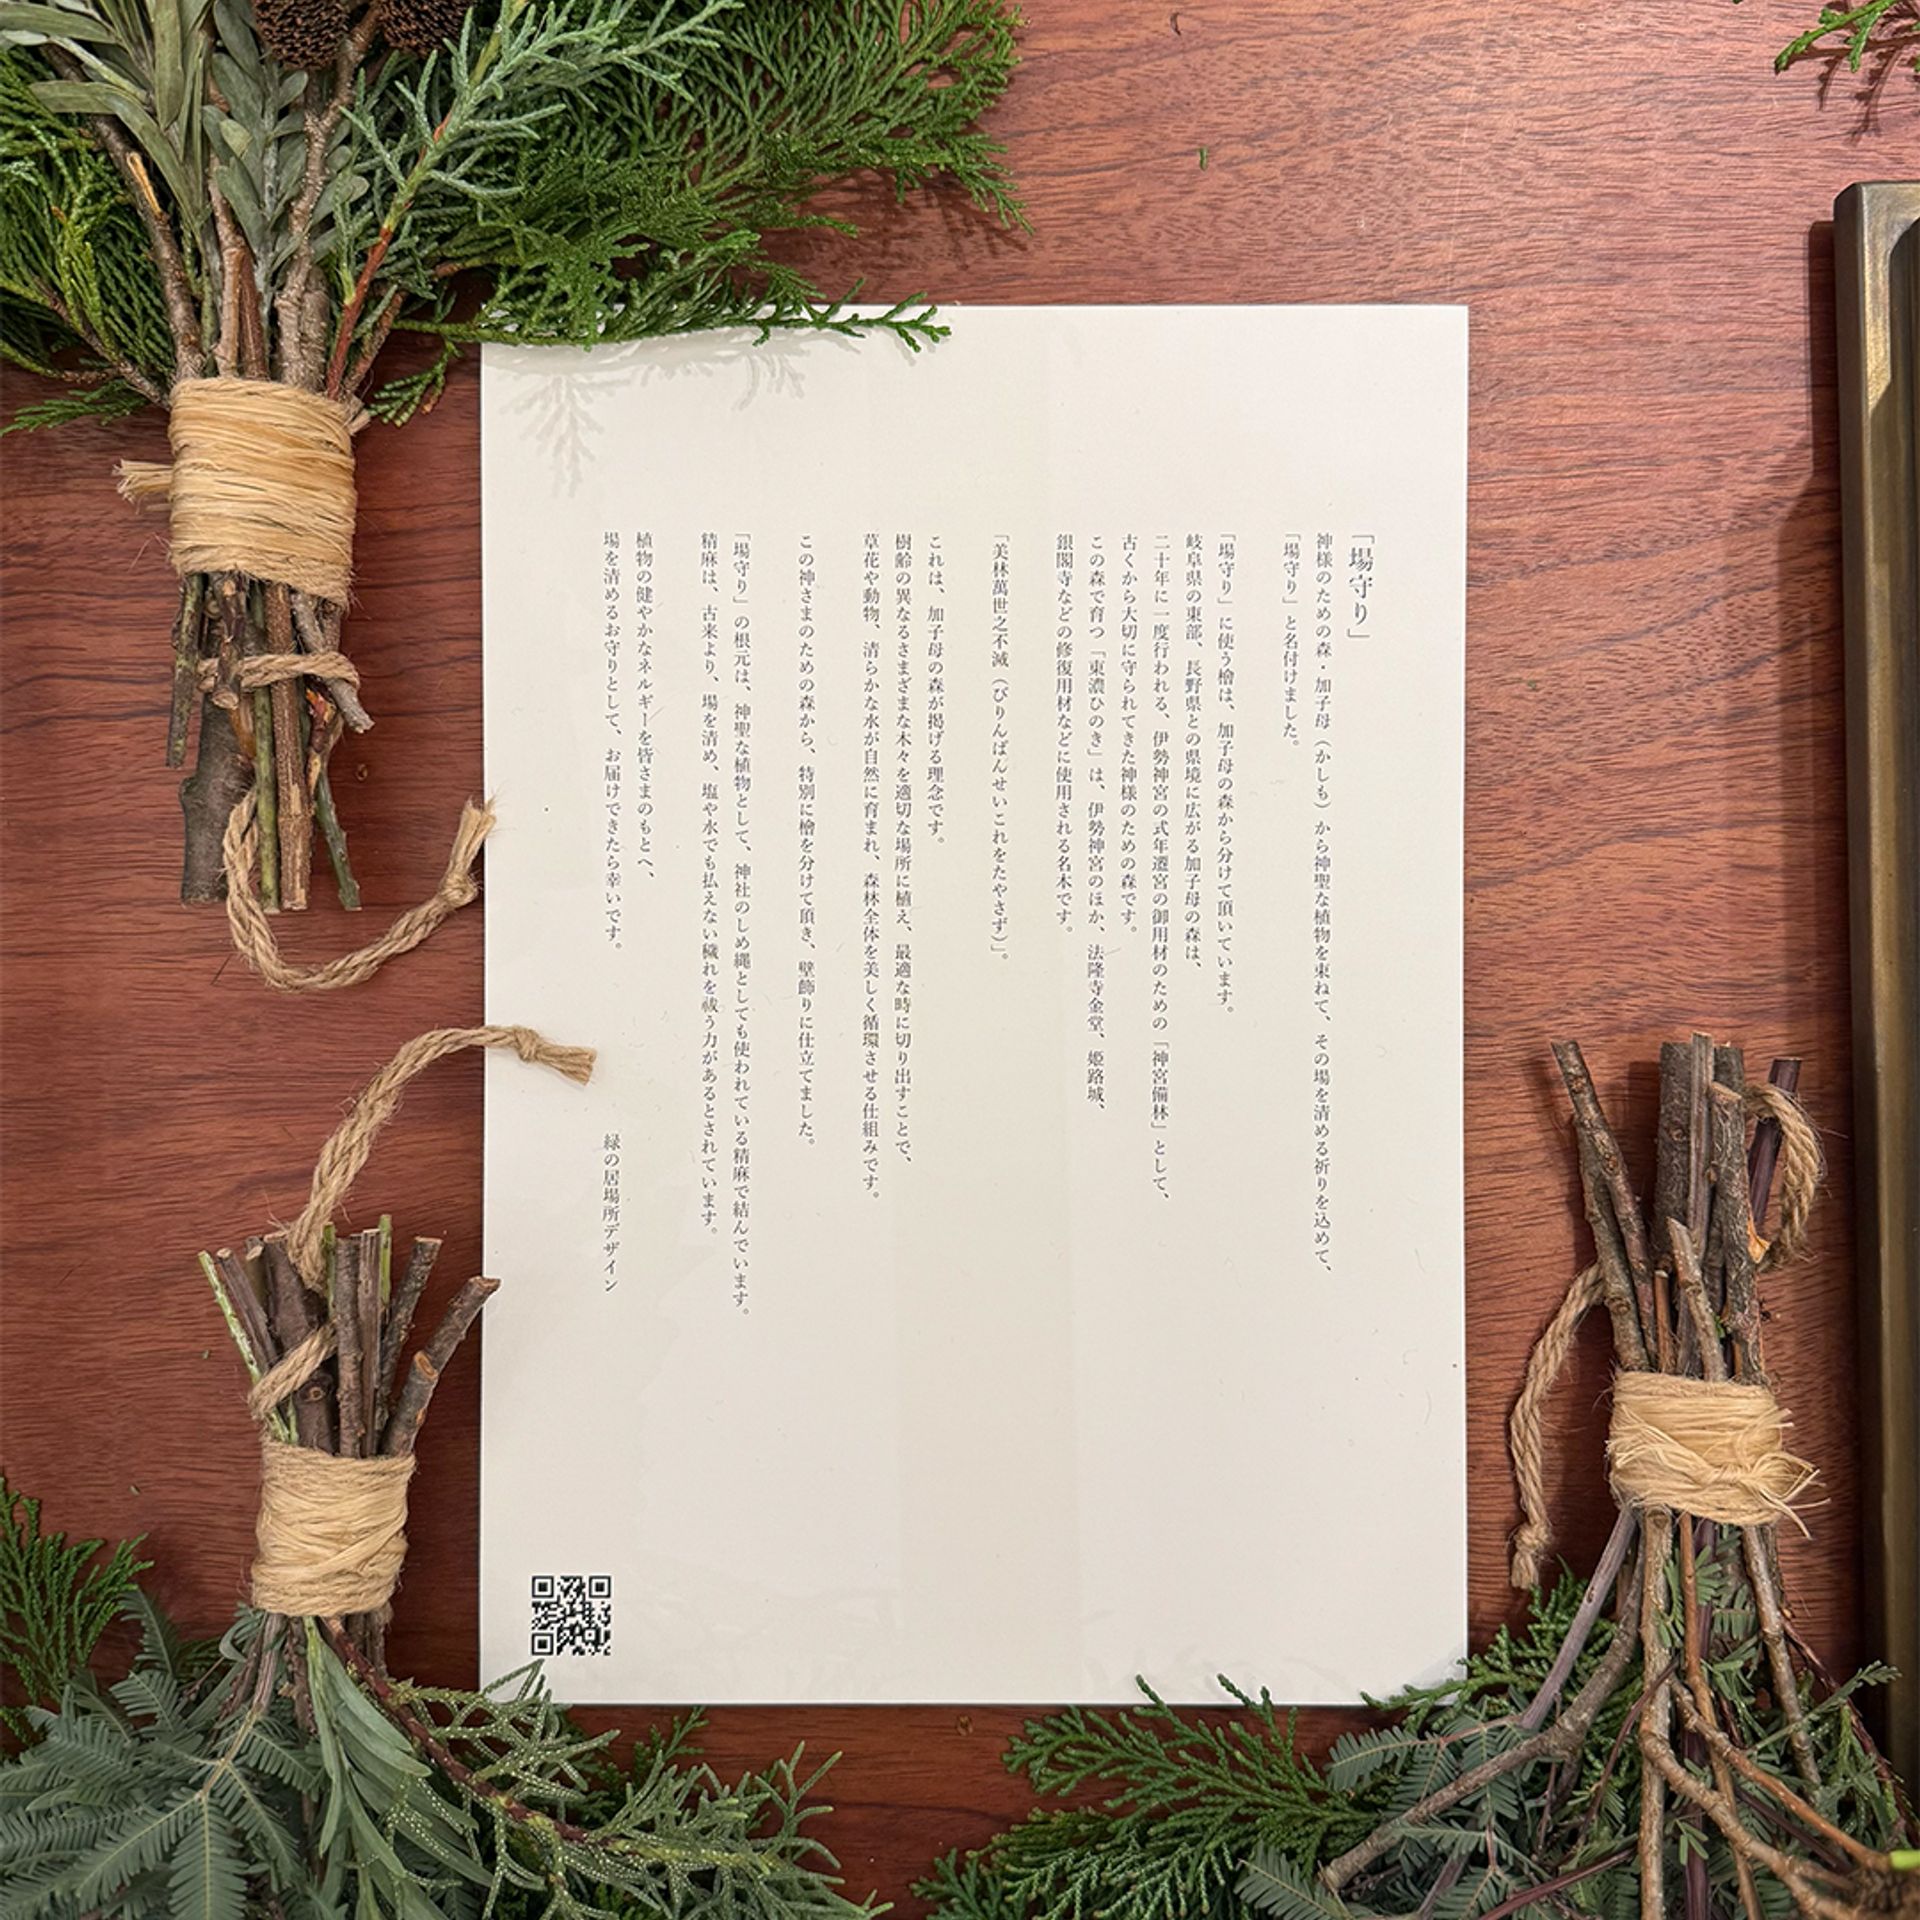 「場守り」
神様のための森・加子母（かしも）から神聖な植物を束ねて、その場を清める祈りを込めて、
「場守り」と名付けました。
「場守り」に使う檜は、加子母の森から分けて頂いています。
岐阜県の東部、長野県との県境に広がる加子母の森は、
二十年に一度行われる、伊勢神宮の式年遷宮の御用材のための「神宮備林」として、
古くから大切に守られてきた神様のための森です。
この森で育つ「東濃ひのき」は、伊勢神宮のほか、法隆寺金堂、姫路城、
銀閣寺などの修復用材などに使用される名木です。
「美林萬世之不滅（びりんばんせいこれをたやさず）」。
これは、加子母の森が掲げる理念です。
樹齢の異なるさまざまな木々を適切な場所に植え、最適な時に切り出すことで、
草花や動物、清らかな水が自然に育まれ、森林全体を美しく循環させる仕組みです。
この神さまのための森から、特別に檜を分けて頂き、壁飾りに仕立てました。
「場守り」の根元は、神聖な植物として、神社のしめ縄としても使われている精麻で結んでいます。
精麻は、古来より、場を清め、塩や水でも払えない穢れを祓う力があるとされています。
植物の健やかなネルギーを皆さまのもとへ、
場を清めるお守りとして、お届けできたら幸いです。
緑の居場所デザイン